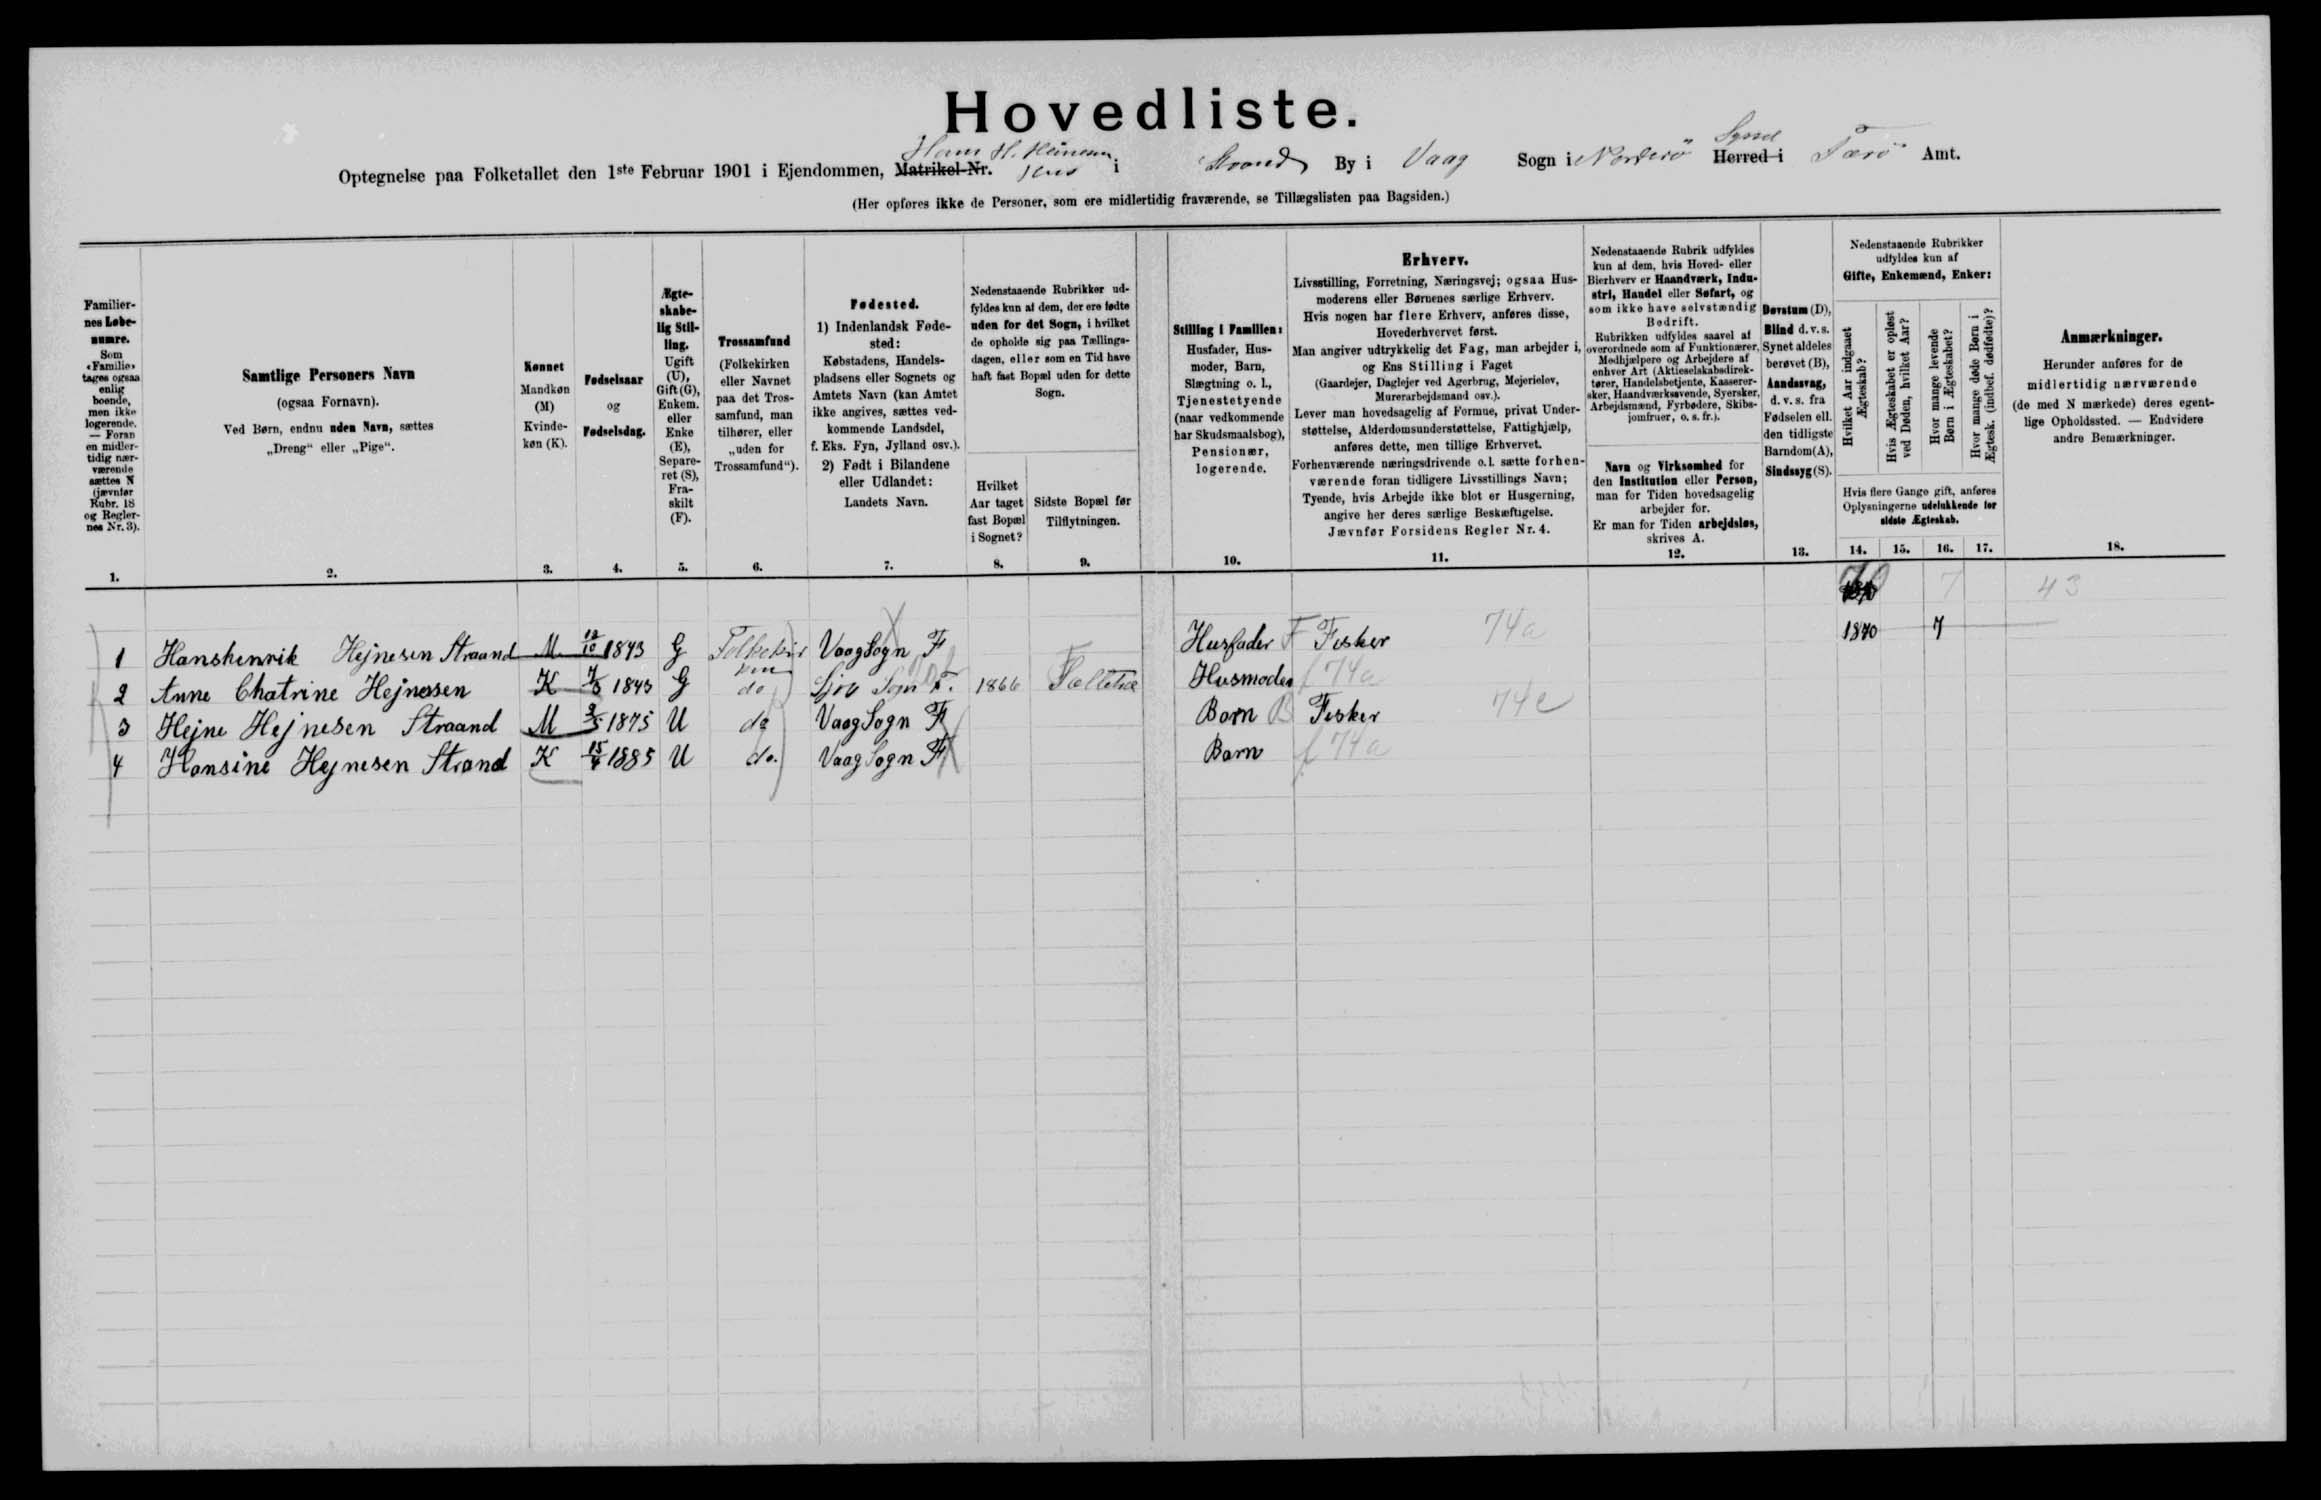 Hovedliste.
Optegnelse paa Folketallet den 1ste Februar 1901 i Ejendommen, Matrikel-Nr. Hans H. Heinesen Hus i Strand By i Vaag Sogn i Norderö Herred i Syssel Færö Amt.
(Her opføres ikke de Personer, som ere midlertidig fraværende, se Tillægslisten paa Bagsiden.)
Familier-
nes Løbe-
numre.
Som
«Familie»
tages ogsaa
enlig
boende,
men ikke
logerende.
— Foran
en midler-
tidig nær-
værende
sættes N
(jævnfør
Rubr. 18
og Regler-
nes Nr. 3).
1.
Samtlige Personers Navn
(ogsaa Fornavn).
Ved Børn, endnu uden Navn, sættes
„Dreng“ eller „Pige“.
2.
Kønnet
Mandkøn
(M)
Kvinde-
køn (K).
3.
Fødselsaar
og
Fødselsdag.
4.
Ægte-
skabe-
lig Stil-
ling.
Ugift
(U),
Gift (G),
Enkem.
eller
Enke
(E),
Separe-
ret (S),
Fra-
skilt
(F).
5.
Trossamfund
(Folkekirken
eller Navnet
paa det Tros-
samfund, man
tilhører, eller
„uden for
Trossamfund“).
6.
Fødested.
1) Indenlandsk Føde-
sted:
Købstadens, Handels-
pladsens eller Sognets og
Amtets Navn (kan Amtet
ikke angives, sættes ved-
kommende Landsdel,
f. Eks. Fyn, Jylland osv.).
2) Født i Bilandene
eller Udlandet:
Landets Navn.
7.
Nedenstaaende Rubrikker ud-
fyldes kun af dem, der ere fødte
uden for det Sogn, i hvilket
de opholde sig paa Tællings-
dagen, eller som en Tid have
haft fast Bopæl uden for dette
Sogn.
Hvilket
Aar taget
fast Bopæl
i Sognet?
8.
Sidste Bopæl før
Tilflytningen.
9.
Stilling i Familien:
Husfader, Hus-
moder, Barn,
Slægtning o. l.,
Tjenestetyende
(naar vedkommende
har Skudsmaalsbog),
Pensionær,
logerende.
10.
Erhverv.
Livsstilling, Forretning, Næringsvej; ogsaa Hus-
moderens eller Børnenes særlige Erhverv.
Hvis nogen har flere Erhverv, anføres disse,
Hovederhvervet først.
Man angiver udtrykkelig det Fag, man arbejder i,
og Ens Stilling i Faget
(Gaardejer, Daglejer ved Agerbrug, Mejerielev,
Murerarbejdsmand osv.).
Lever man hovedsagelig af Formue, privat Under-
støttelse, Alderdomsunderstøttelse, Fattighjælp,
anføres dette, men tillige Erhvervet.
Forhenværende næringsdrivende o. l. sætte forhen-
værende foran tidligere Livsstillings Navn;
Tyende, hvis Arbejde ikke blot er Husgerning,
angive her deres særlige Beskæftigelse.
Jævnfør Forsidens Regler Nr. 4.
11.
Nedenstaaende Rubrik udfyldes
kun af dem, hvis Hoved- eller
Bierhverv er Haandværk, Indu-
stri, Handel eller Søfart, og
som ikke have selvstændig
Bedrift.
Rubrikken udfyldes saavel af
overordnede som af Funktionærer,
Medhjælpere og Arbejdere af
enhver Art (Aktieselskabsdirek-
tører, Handelsbetjente, Kasserer-
sker, Haandværkssvende, Syersker,
Arbejdsmænd, Fyrbødere, Skibs-
jomfruer, o. s. fr.).
Navn og Virksomhed for
den Institution eller Person,
man for Tiden hovedsagelig
arbejder for.
Er man for Tiden arbejdsløs,
skrives A.
12.
Døvstum (D),
Blind d. v. s.
Synet aldeles
berøvet (B),
Aandssvag,
d. v. s. fra
Fødselen ell.
den tidligste
Barndom (A),
Sindssyg (S).
13.
Nedenstaaende Rubrikker
udfyldes kun af
Gifte, Enkemænd, Enker:
Hvilket Aar indgaaet
Ægteskab?
Hvis Ægteskabet er opløst
ved Døden, hvilket Aar?
Hvor mange levende
Børn i Ægteskabet?
Hvor mange døde Børn i
Ægtesk. (indbef. dødfødte)?
Hvis flere Gange gift, anføres
Oplysningerne udelukkende for
sidste Ægteskab.
14. 15. 16. 17.
Anmærkninger.
Herunder anføres for de
midlertidig nærværende
(de med N mærkede) deres egent-
lige Opholdssted. — Endvidere
andre Bemærkninger.
18.
70 7 43
1 Hanshenrik Hejnesen Straand M 12/10 1843 G Folkekirken Vaag Sogn F Husfader F Fisker 74a 1870 7
2 Anne Chatrine Hejnesen K 7/3 1843 G do Sjov Sogn F. 1866 Husmoder f 74a
3 Hejne Hejnesen Straand M 2/5 1875 U do Vaag Sogn F Barn B Fisker 74c
4 Hansine Hejnesen Strand K 15/4 1885 U do. Vaag Sogn F Barn f 74a